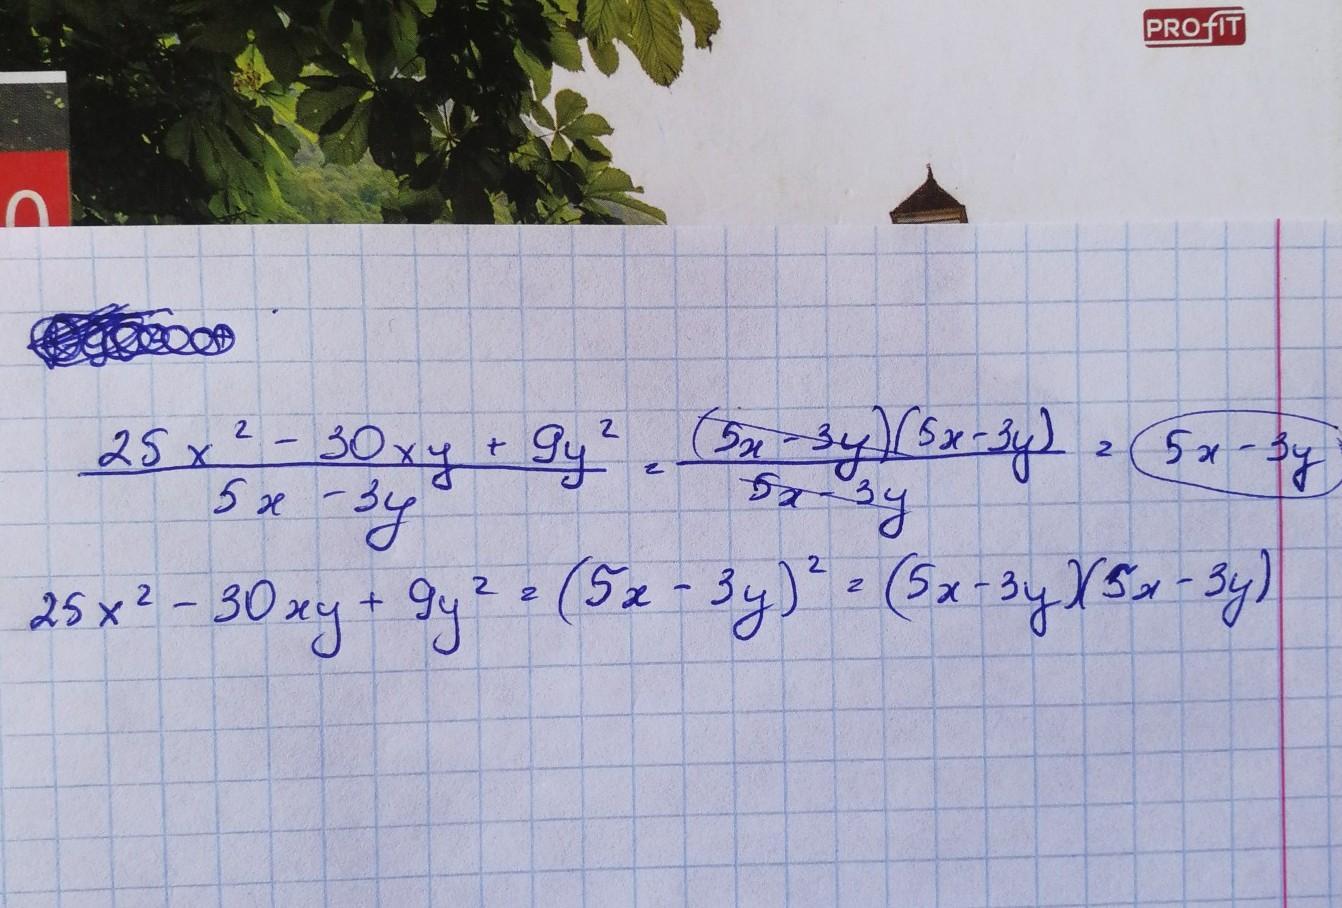 PROfIT
0
25x² - 30xy + 9y² / 5x - 3y = (5x - 3y)(5x - 3y) / 5x - 3y = 5x - 3y
25x² - 30xy + 9y² = (5x - 3y)² = (5x - 3y)(5x - 3y)